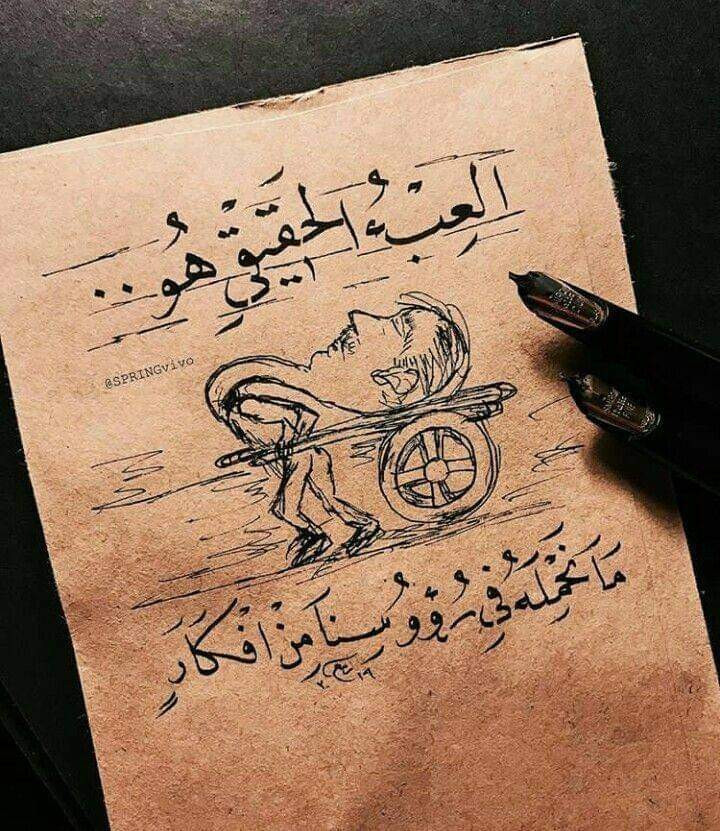 العِبْءُ الحَقِيقِيِّ هُو..
@SPRINGvivo
مَا نَحْمِلَه فِي رُؤُوسِنا مِنْ افْكَارٍ
٢٠١٩